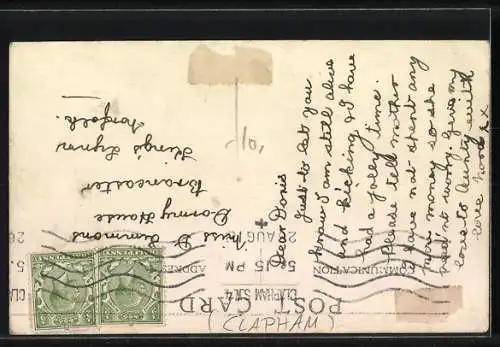 POST CARD
COMMUNICATION
ADDRESS
Dear Doris
Just to let you
know I am still alive
and kicking & I have
had a jolly time.
Please tell mother
I have not spent any
more money so she
need not worry. Give my
love to Aunty with
love
xx
Miss D. Simmons
Dormy House
Brancaster
King's Lynn
Norfolk.
10/-
CLAPHAM
5.15 PM
26 AUG
HALFPENNY
HALFPENNY
(CLAPHAM)